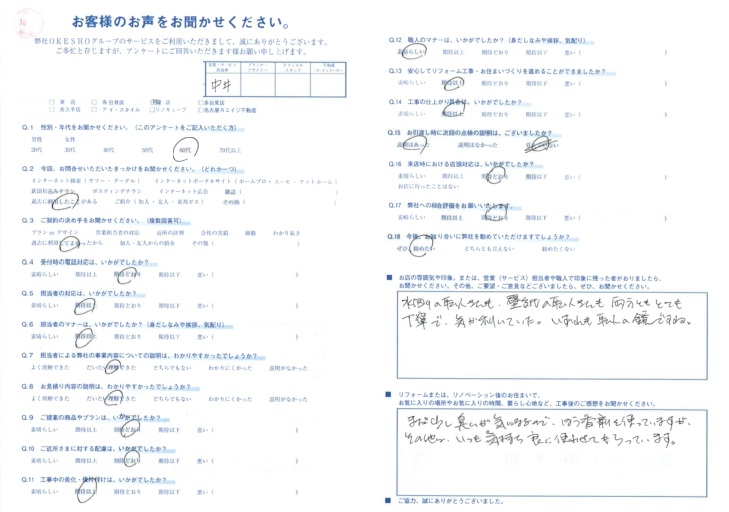 お客様のお声をお聞かせください。
弊社OKESHOグループのサービスをご利用いただきまして、誠にありがとうございます。
ご多忙と存じますが、アンケートにご回答いただきます様お願い申し上げます。
中井
Q.1 性別・年代をお聞かせください。（このアンケートをご記入いただく方）
男性 女性
20代 30代 40代 50代 60代 70代以上
Q.2 今回、お問合せいただいたきっかけをお聞かせください。（どれか一つ）
インターネット検索（ヤフー・グーグル） インターネットポータルサイト（ホームプロ・スーモ・アットホーム）
新聞折込みチラシ ポスティングチラシ インターネット広告 雑誌（ ）
過去に利用したことがある ご紹介（知人・友人・東邦ガス） その他（ ）
Q.3 ご契約の決め手をお聞かせください。（複数回答可）
プラン or デザイン 営業担当者の対応 店所の評判 会社の実績 価格 わかり易さ
過去に利用してよかったから 知人・友人からの紹介 その他（ ）
Q.4 受付時の電話対応は、いかがでしたか？
素晴らしい 期待以上 期待どおり 期待以下 悪い（ ）
Q.5 担当者の対応は、いかがでしたか？
素晴らしい 期待以上 期待どおり 期待以下 悪い（ ）
Q.6 担当者のマナーは、いかがでしたか？（身だしなみや挨拶、気配り）
素晴らしい 期待以上 期待どおり 期待以下 悪い（ ）
Q.7 担当者による弊社の事業内容についての説明は、わかりやすかったでしょうか？
よく理解できた だいたい理解できた どちらでもない わかりにくかった 説明がなかった
Q.8 お見積り内容の説明は、わかりやすかったでしょうか？
よく理解できた だいたい理解できた どちらでもない わかりにくかった 説明がなかった
Q.9 ご提案の商品やプランは、いかがでしたか？
素晴らしい 期待以上 期待どおり 期待以下 悪い（ ）
Q.10 ご近所さまに対する配慮は、いかがでしたか？
素晴らしい 期待以上 期待どおり 期待以下 悪い（ ）
Q.11 工事中の美化・後片付けは、いかがでしたか？
素晴らしい 期待以上 期待どおり 期待以下 悪い（ ）
Q.12 職人のマナーは、いかがでしたか？（身だしなみや挨拶、気配り）
素晴らしい 期待以上 期待どおり 期待以下 悪い（ ）
Q.13 安心してリフォーム工事・お住まいづくりを進めることができましたか？
素晴らしい 期待以上 期待どおり 期待以下 悪い（ ）
Q.14 工事の仕上がり具合は、いかがでしたか？
素晴らしい 期待以上 期待どおり 期待以下 悪い（ ）
Q.15 お引渡し時に次回の点検の説明は、ございましたか？
説明はあった 説明はなかった
Q.16 来店時における店頭対応は、いかがでしたか？
素晴らしい 期待以上 期待どおり 期待以下 悪い（ ）
お店に行ったことはない
Q.17 弊社への総合評価をお願いいたします。
素晴らしい 期待以上 期待どおり 期待以下 悪い（ ）
Q.18 今後、お知り合いに弊社を勧めていただけますでしょうか？
ぜひ、勧めたい どちらとも言えない 勧めたくない
■ お店の雰囲気や印象、または、営業（サービス）担当者や職人で印象に残った者がおりましたら、
お聞かせください。その他、ご要望・ご意見などございましたら、ぜひ、お聞かせください。
水回りの職人さんも、壁紙の職人さんも両方ともとても
丁寧で、気が利いていた。いずれも職人の鏡ですね。
■ リフォームまたは、リノベーション後のお住まいで、
お気に入りの場所やお気に入りの時間、暮らし心地など、工事後のご感想をお聞かせください。
まだ少し臭いが気になるので、芳香剤を使っていますが、
その他は、いつも気持ち良く使わせてもらっています。
■ ご協力、誠にありがとうございました。